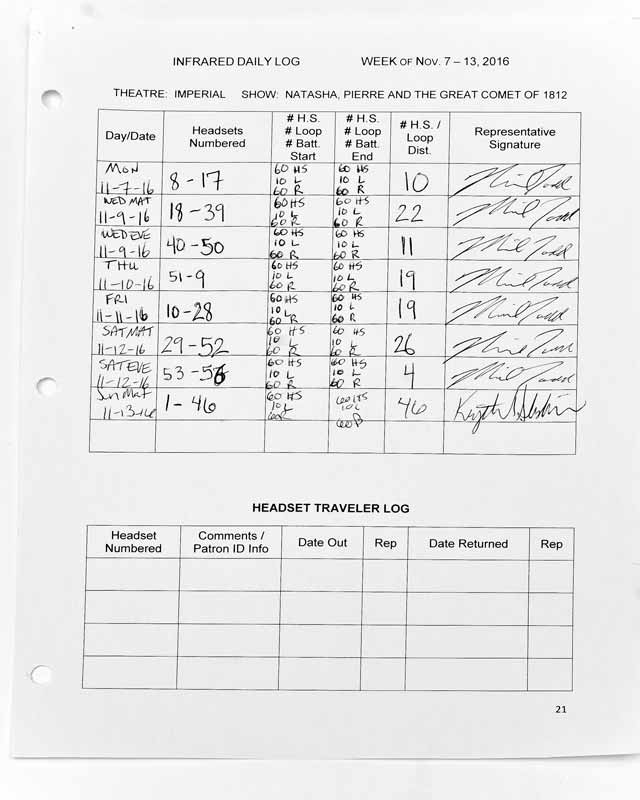 INFRARED DAILY LOG WEEK OF NOV. 7 – 13, 2016
THEATRE: IMPERIAL SHOW: NATASHA, PIERRE AND THE GREAT COMET OF 1812
Day/Date Headsets Numbered # H.S. # Loop # Batt. Start # H.S. # Loop # Batt. End # H.S. / Loop Dist. Representative Signature
MON 11-7-16 8-17 60 HS 10 L 60 R 60 HS 10 L 60 R 10
WED MAT 11-9-16 18-39 60 HS 10 L 60 R 60 HS 10 L 60 R 22
WED EVE 11-9-16 40-50 60 HS 10 L 60 R 60 HS 10 L 60 R 11
THU 11-10-16 51-9 60 HS 10 L 60 R 60 HS 10 L 60 R 19
FRI 11-11-16 10-28 60 HS 10 L 60 R 60 HS 10 L 60 R 19
SAT MAT 11-12-16 29-52 60 HS 10 L 60 R 60 HS 10 L 60 R 26
SAT EVE 11-12-16 53-56 60 HS 10 L 60 R 60 HS 10 L 60 R 4
Sun Mat 11-13-16 1-46 60 HS 10 L 60R 60 HS 10L 60R 46
HEADSET TRAVELER LOG
Headset Numbered Comments / Patron ID Info Date Out Rep Date Returned Rep
21